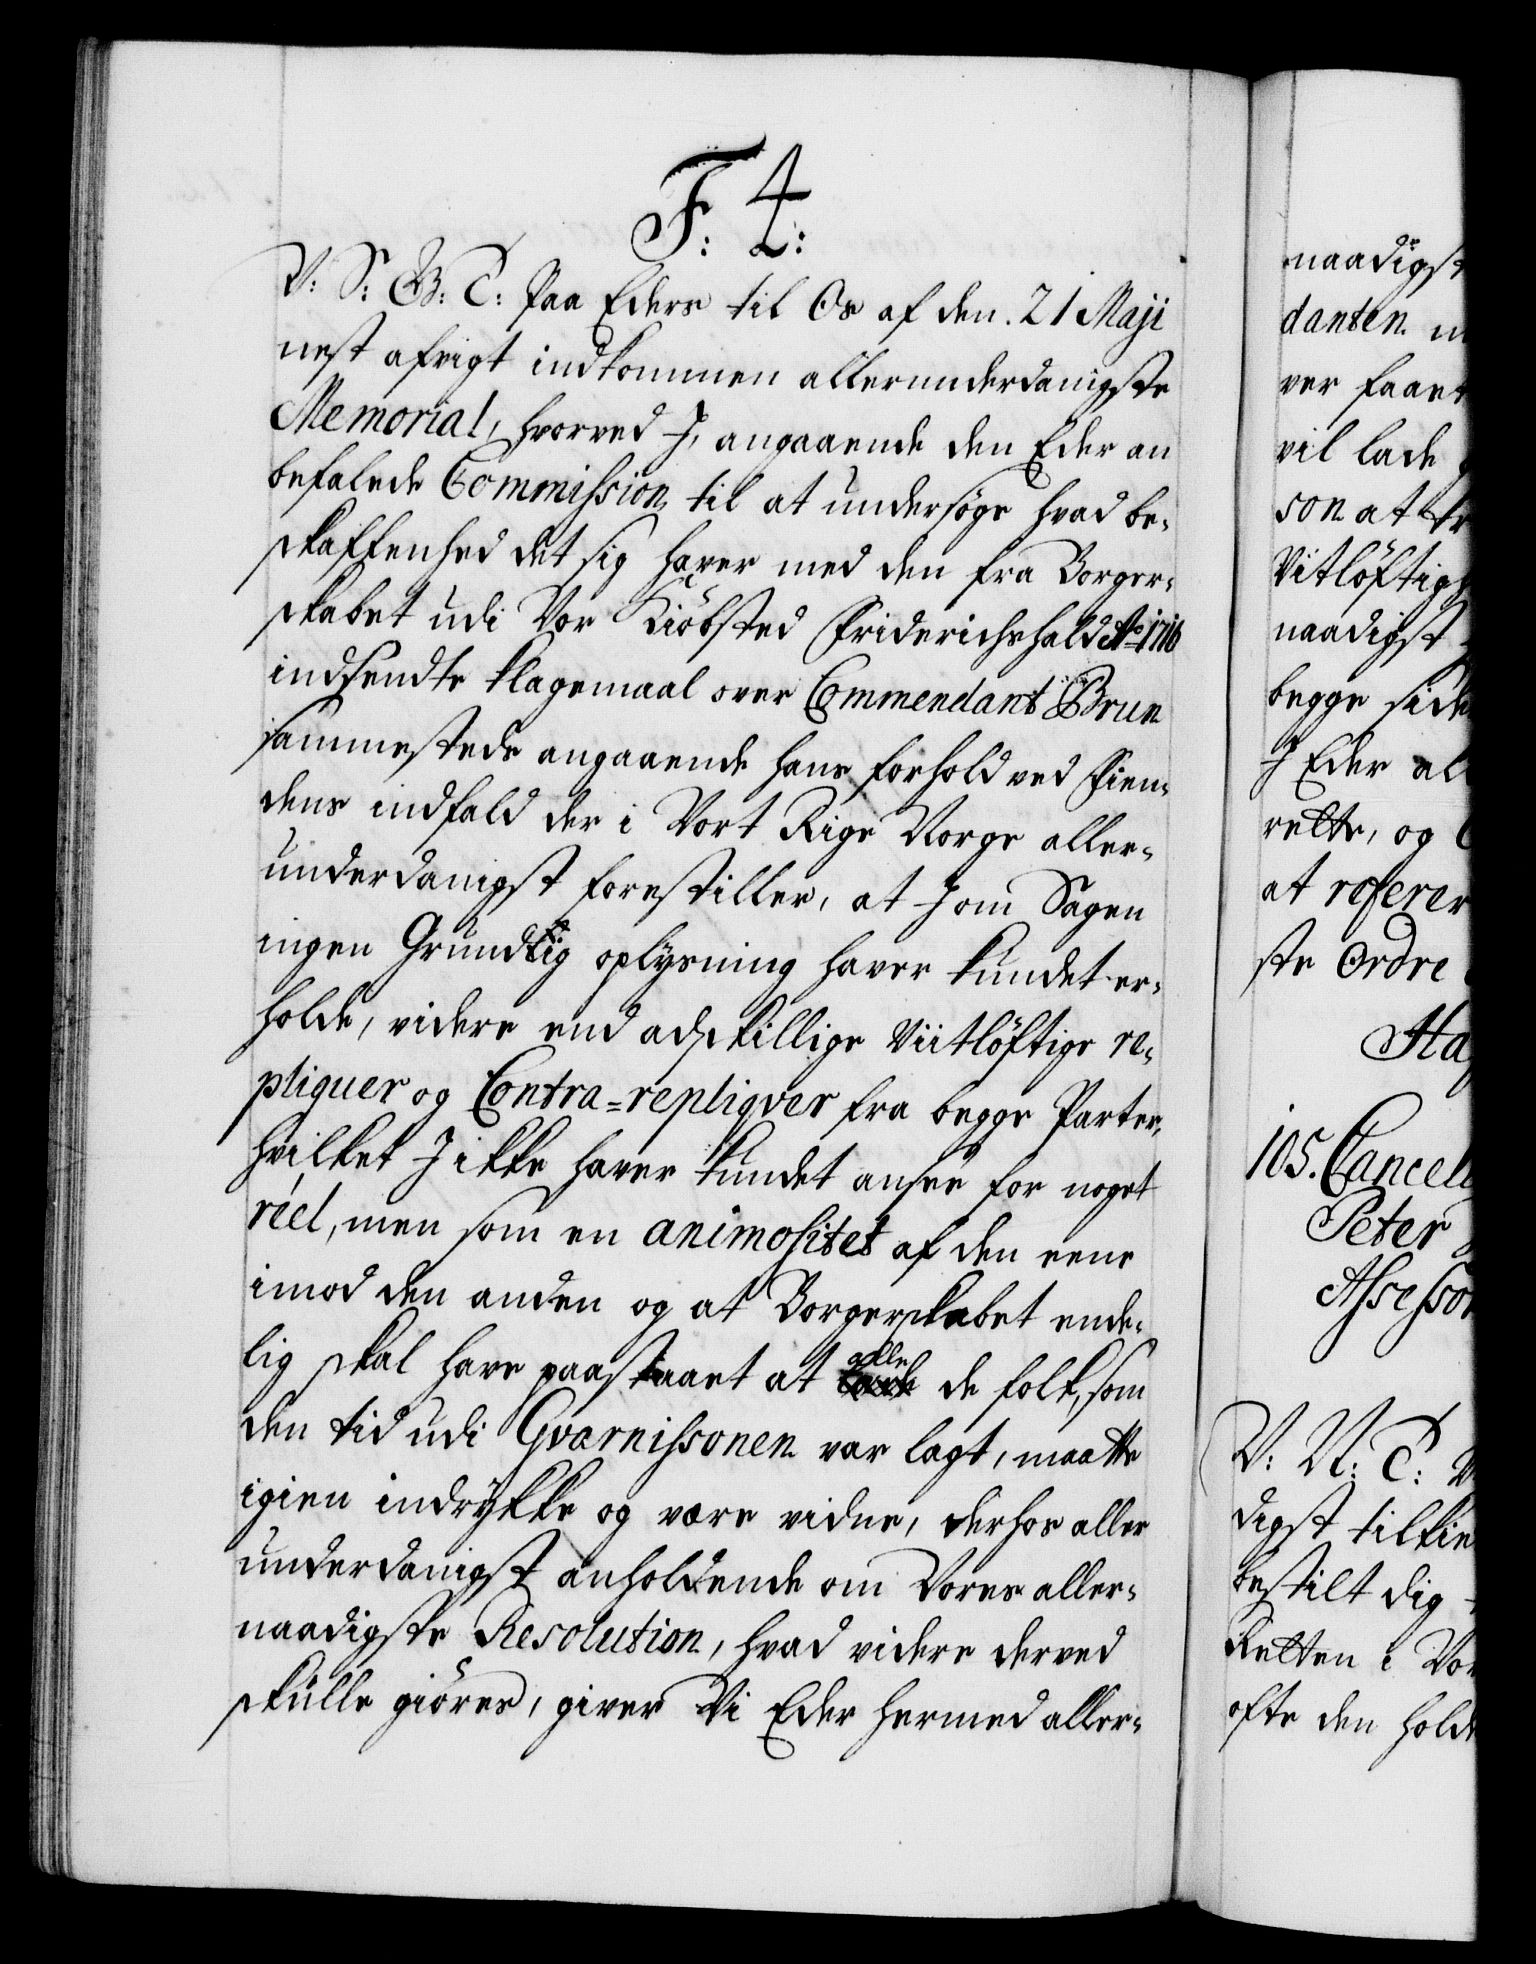 F: 4:
V: S: G: T: Paa Eders til Os af den 21 Maji
nest afvigt indkommen allerunderdanigste
Memorial, hvorved I, angaaende den Eder an
befalede Commission, til at undersøge hvad be-
skaffenhed det sig haver med den fra Borger-
skabet udi Vor Kiöbsted Friderichshald A° 1716
indsendte klagemaal over Commendant Brun
sammesteds angaaende hans forhold ved Fien-
dens indfald der i Vort Rige Norge aller-
underdanigst forestiller, at I om Sagen
ingen Grundtlig oplysning haver kundet er-
holde, videre end adskillige Viitlöftige re-
pliquer og Contra-repliqver fra begge Parter,
hvilket I ikke haver kundet ansee for noget
réel, men som en animositet af den eene
imod den anden og at Borgerskabet ende-
lig skal have paastaaet at alle de folk, som
den tid udi Gvarnissonen var lagt, maatte
igien indrykke og være vidne, derhos aller
underdanigst anholdende om Vores aller-
naadigste Resolution, hvad videre derved
skulle giöres, giver Vi Eder hermed aller-
naadigst
danten
ver faaet
vil lade
son at
Vitlöftig
naadigst
begge side
I Eder al
rette, og
at referer
ste Ordre
105. Cancell
Peter
Assessor
V: N: T:
digst tilkie
bestilt dig
Retten i Vor
ofte den holde